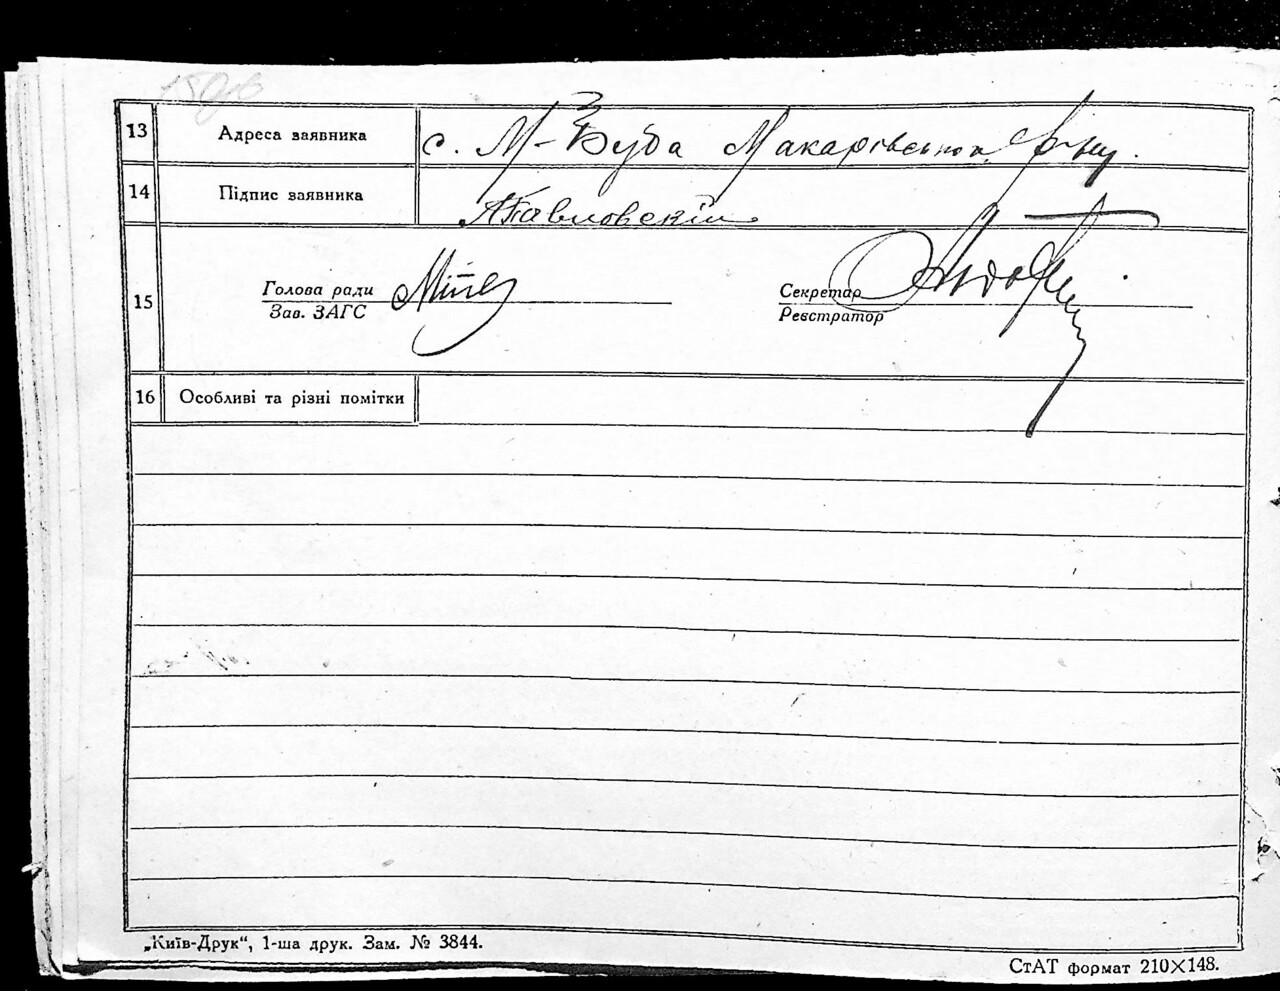 13 Адреса заявника с. М-Буда Макарівського р-ну.
14 Підпис заявника АПавловскій
15
Голова ради Секретар
Зав. ЗАГС Реєстратор
16 Особливі та різні помітки
„Київ-Друк“, 1-ша друк. Зам. № 3844.
СтАТ формат 210×148.